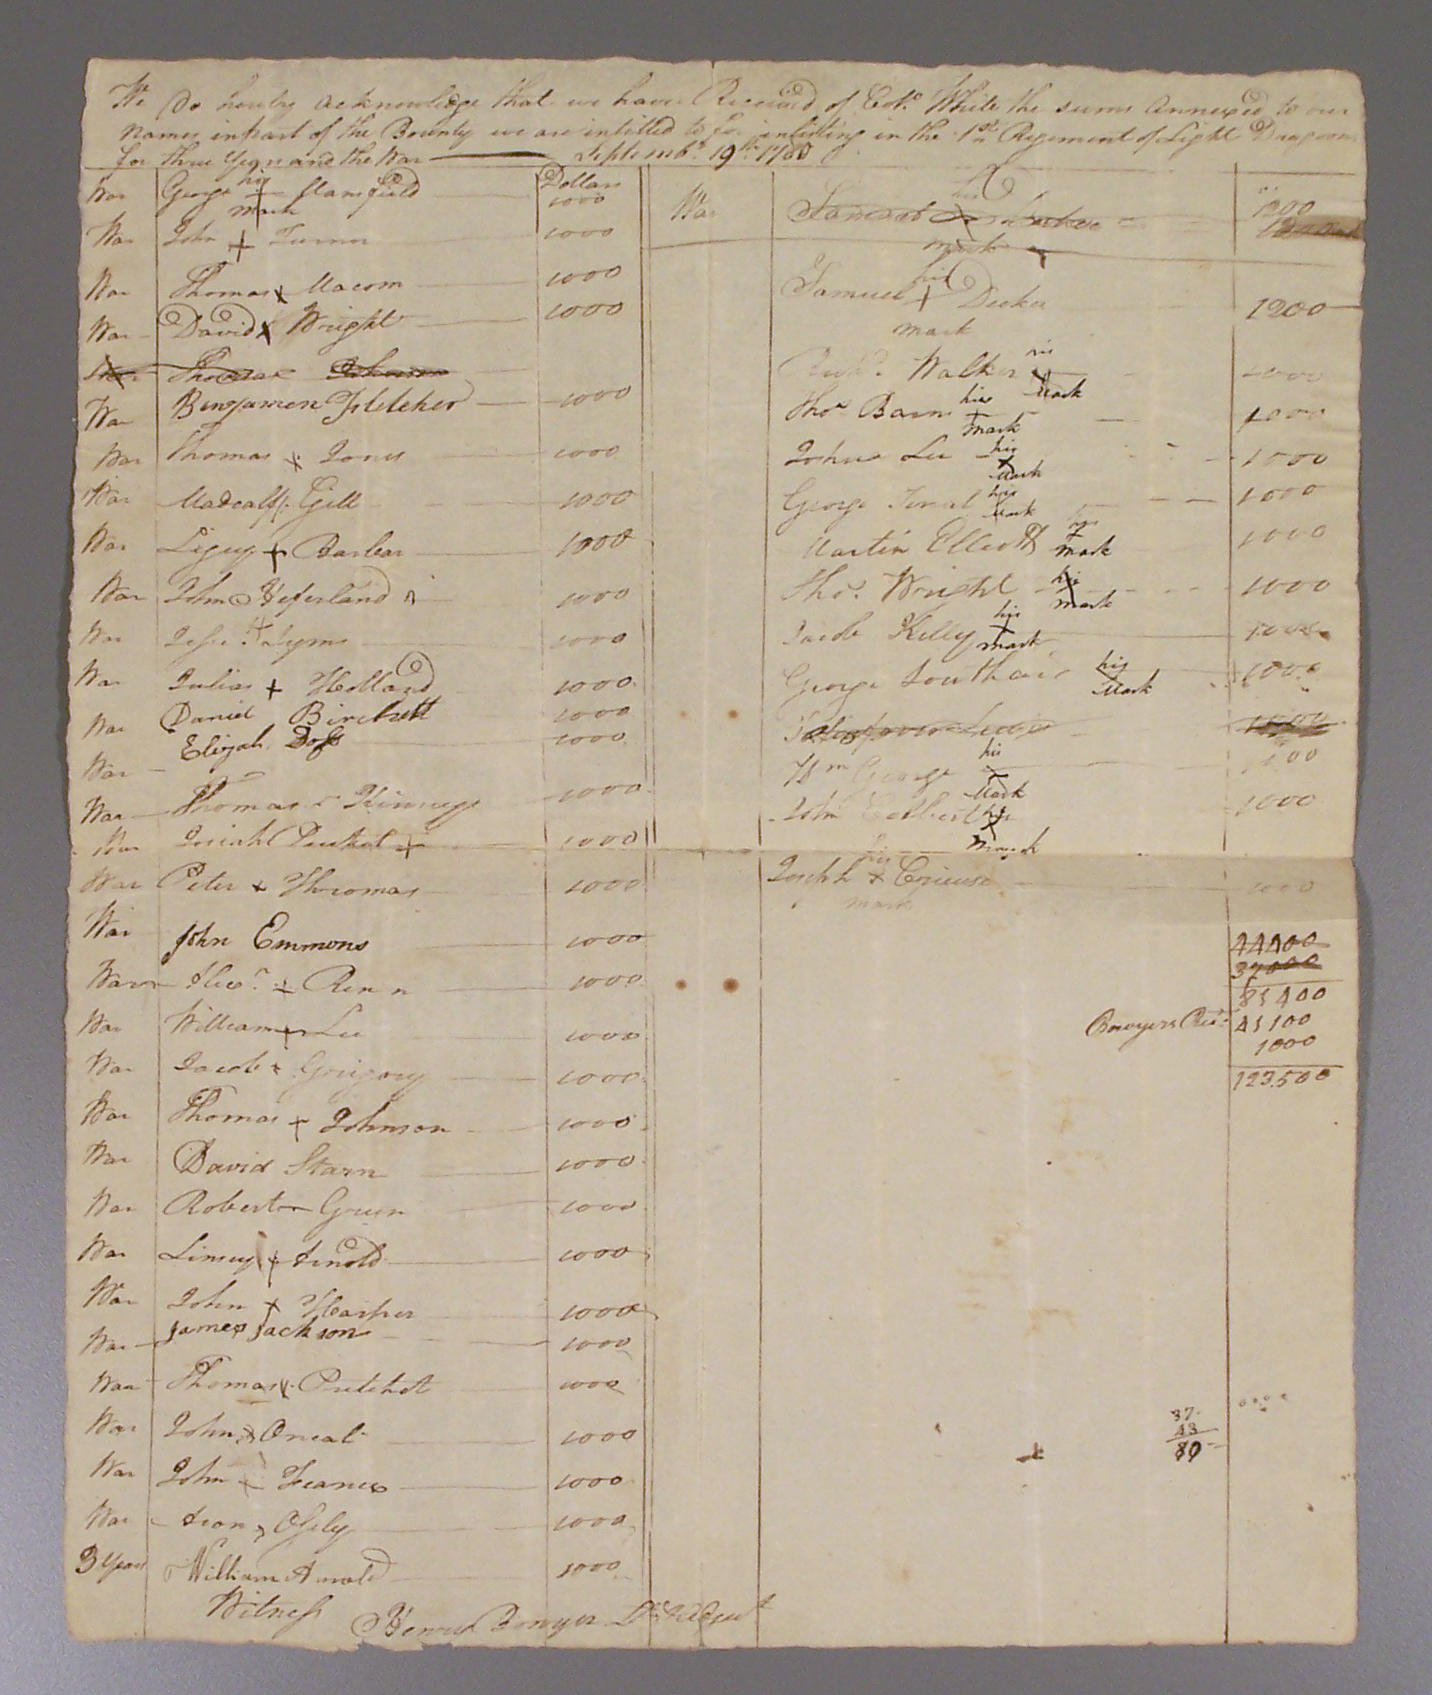 We Do hereby acknowledge that we have Received of Col.º White the sums annexed to our
names in part of the Bounty we are intitled to for inlisting in the 1st Regement of Light Dragoons
for three years and the War Septemb.r 19th 1780
Dollars
War George his + mark Mansfield 1000
War John + Turner 1000
War Thomas x Macom 1000
War David x Wright 1000
War Thomas Johnson
War Benjamen Fletcher 1000
War Thomas x Jones 1000
War Madcalff Gill 1000
War + Barber 1000
War John 1000
War 1000
War Julias + Holland 1000
War Daniel Birchett 1000
War Elijah Doss 1000
War Thomas Kinneys 1000
War Josiah + 1000
War Peter x Thromas 1000
War John Emmons 1000
War + Renn 1000
War William + Lee 1000
War Jacob x Grigory 1000
War Thomas + Johnson 1000
War David Starn 1000
War Robert Green 1000
War Linsey + Arnold 1000
War John x Harper 1000
War James Jackson 1000
War Thomas x Pritchet 1000
War John x Oneal 1000
War John Frances 1000
War 1000
3 Years William Arnold 1000
Witness Henry Bowyer
War Samuel his x mark 1200
Samuel his + mark Decker 1200
Rich.d Walker his x Mark 1000
Tho.s Barns his + mark 1000
John Lee his x Mark 1000
George his Mark 1000
Martin Elliott his + mark 1000
Tho.s Wright his x mark 1000
Jacob Kelly his + mark 1000
George Southair his x Mark 1000
1000
Wm George his x Mark 1000
John his x Mark 1000
Joseph his x mark 1000
44400
37000
81400
Bowyers Rec.t 41100
1000
123.500
37
43
80